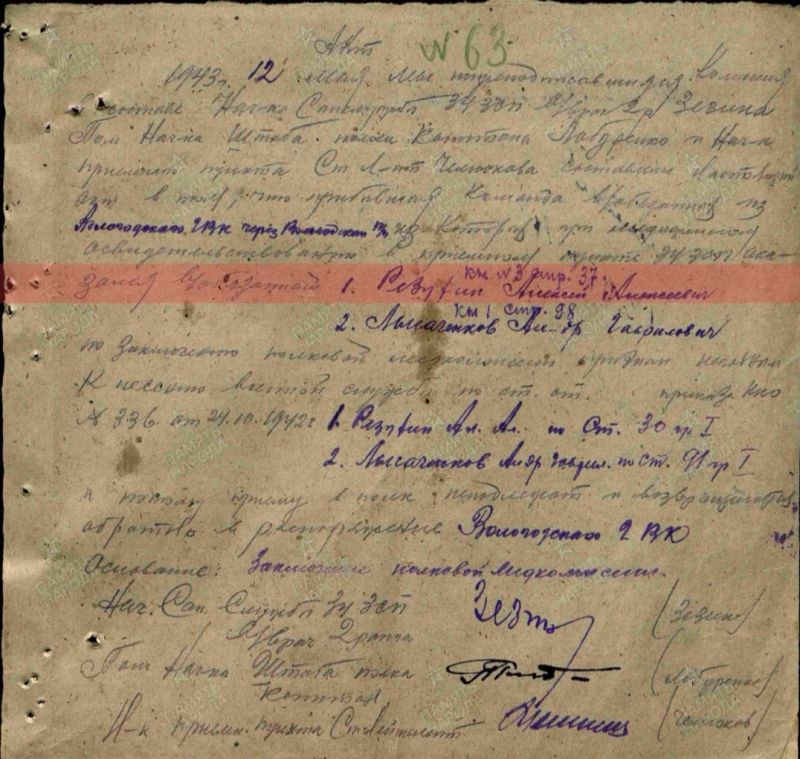 Акт N 63
1943 г. 12 мая мы нижеподписавшиеся Комиссия
в составе Нач-ка Санслужбы 34 зсп в/врач 2р Зезина
Пом Нач-ка Штаба полка Капитана Лобуренко и Нач-к
приемного пункта Ст Л-нт Челюкова составили настоящий
акт в том, что прибывшая команда в/обязанных из
Вологодского ГВК через Вологодский из которых при медицинском
освидетельствовании в приемном пункте 34 зсп ока-
зались в/обязанный 1. Резугин Алексей Алексеевич
кн. N 3 стр. 37.
кн 1 стр. 98
2. Лысаченков Ал-др Гаврилович
по заключению полковой медкомиссии признан негодным
к несению военной службы по ст. ст. приказа НКО
N 336 от 24.10.1942 г 1. Резугин Ал. Ал. по Ст. 30 гр I
2. Лысаченков Алдр Гаврил. по ст. 91 гр I
и потому приему в полк неподлежат и возвращаются
обратно в распоряжение Вологодского ГВК
Основание: Заключение полковой медкомиссии.
Нач. Сан. Службы 34 зсп (Зезин)
в/врач 2 ранга
Пом Нач-ка Штаба полка (Лобуренко)
Капитан
Н-к прием. пункта Ст Лейтенант (Челюков)